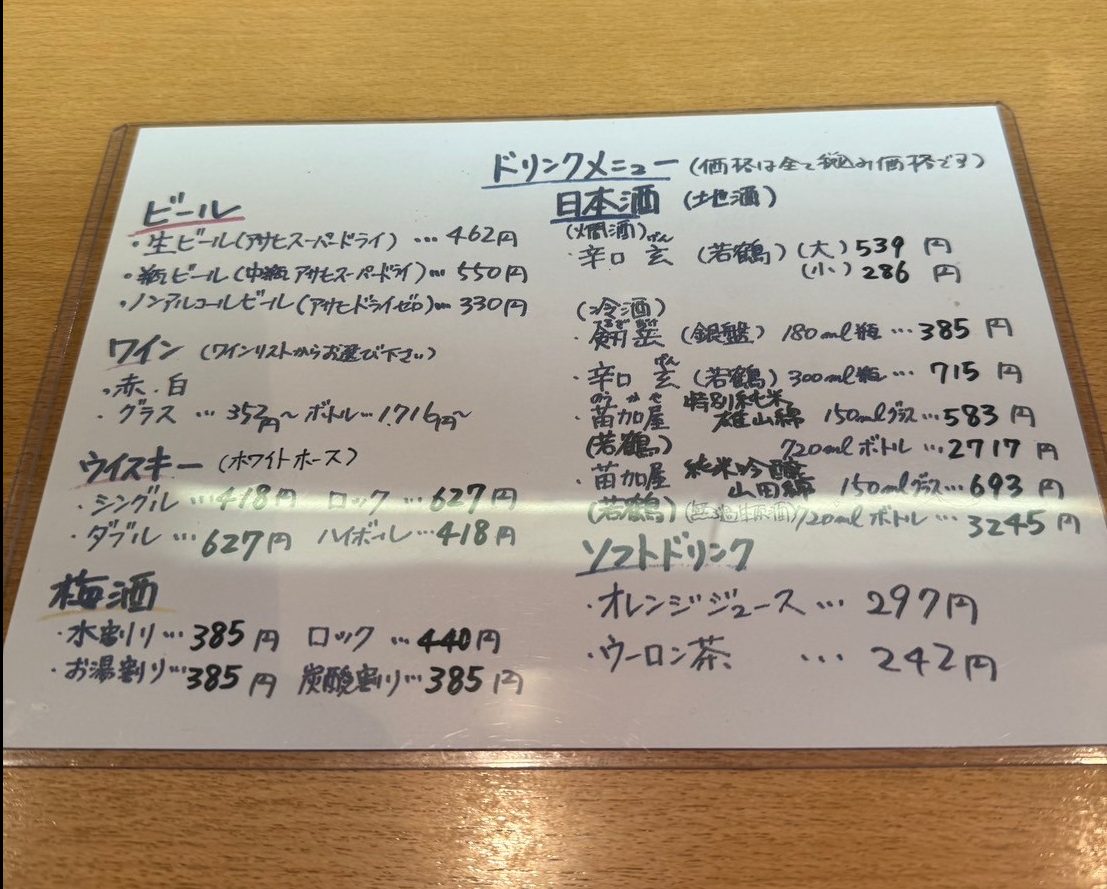 ドリンクメニュー (価格は全て税込み価格です)
ビール
・生ビール(アサヒスーパードライ) … 462円
・瓶ビール(中瓶アサヒスーパードライ)… 550円
・ノンアルコールビール(アサヒドライゼロ)… 330円
ワイン (ワインリストからお選び下さい)
・赤.白
・グラス … 352円〜 ボトル… 1.716円〜
ウイスキー (ホワイトホース)
・シングル …418円 ロック … 627円
・ダブル … 627円 ハイボール…418円
梅酒
・水割り…385円 ロック … 440円
・お湯割り…385円 炭酸割り…385円
日本酒 (地酒)
(燗酒)
げん
・辛口 玄 (若鶴) (大) 539 円
(小) 286 円
(冷酒)
・剣岳 (銀盤) 180ml瓶 … 385 円
げん
・辛口 玄 (若鶴) 300ml瓶 … 715 円
のうかや 特別純米
・苗加屋 雄山錦 150mlグラス…583円
(若鶴) 720mlボトル …2717円
・苗加屋 純米吟醸
山田錦 150mlグラス…693円
(若鶴) (無ろ過生原酒) 720mlボトル … 3245円
ソフトドリンク
・オレンジジュース … 297円
・ウーロン茶 … 242円